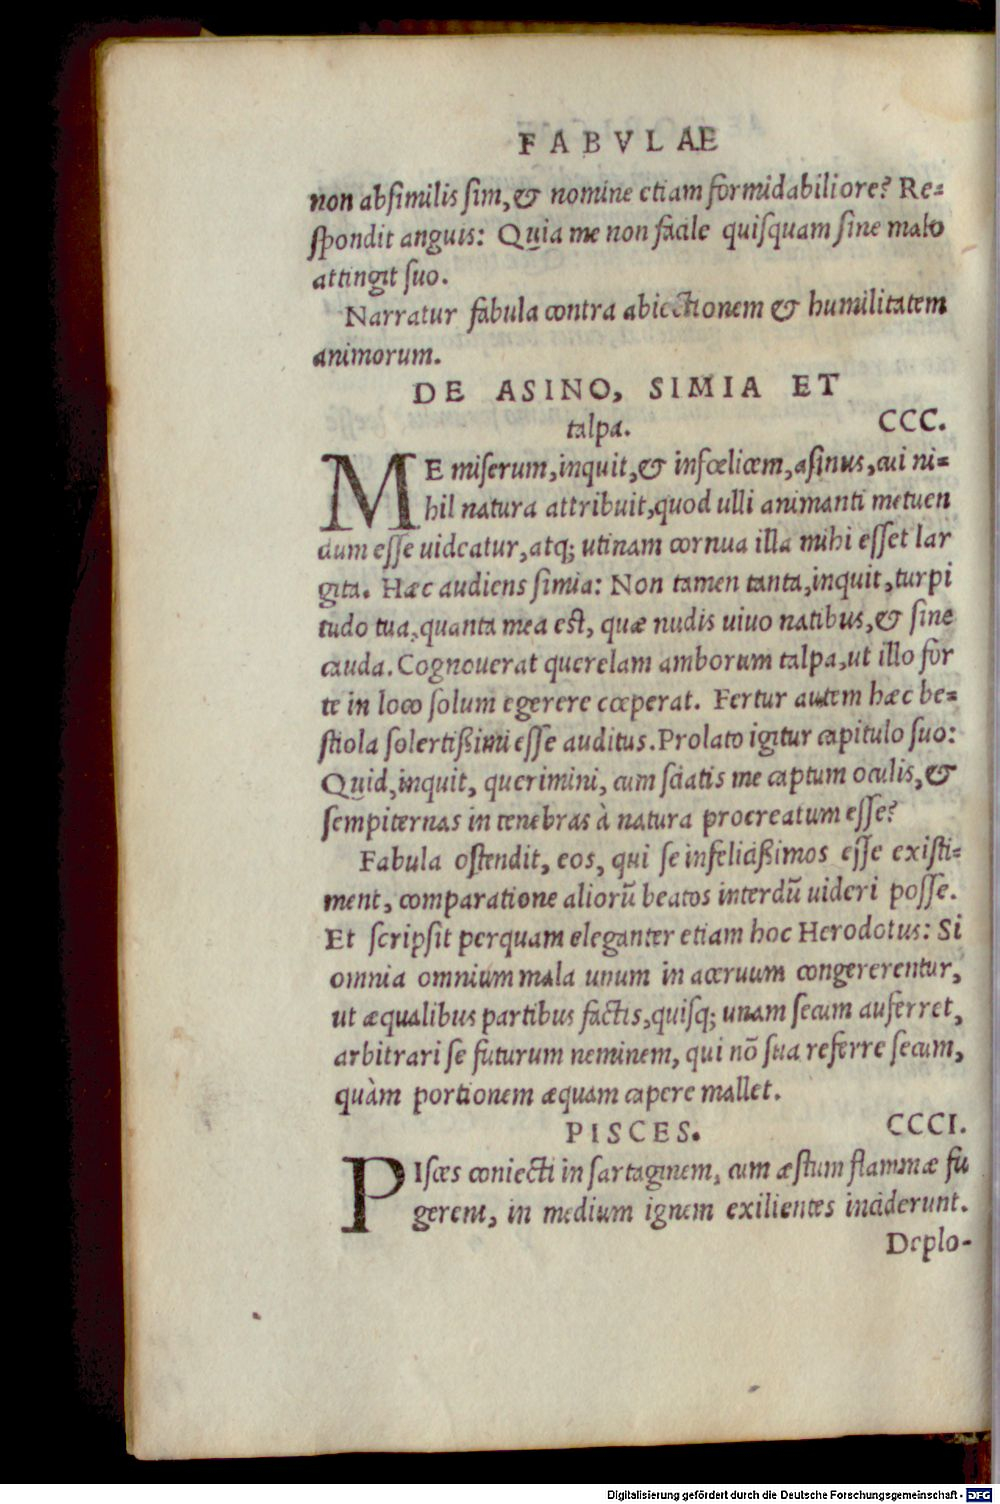 FABVLAE
non absimilis sim, & nomine etiam formidabiliore? Re=
spondit anguis: Quia me non facile quisquam sine malo
attingit suo.
Narratur fabula contra abiectionem & humilitatem
animorum.
DE ASINO, SIMIA ET
talpa. CCC.
ME miserum, inquit, & infœlicem, asinus, cui ni=
hil natura attribuit, quod ulli animanti metuen
dum esse uideatur, atq; utinam cornua illa mihi esset lar
gita. Hæc audiens simia: Non tamen tanta, inquit, turpi
tudo tua, quanta mea est, quæ nudis uiuo natibus, & sine
cauda. Cognouerat querelam amborum talpa, ut illo for
te in loco solum egerere cœperat. Fertur autem hæc be=
stiola solertißimi esse auditus. Prolato igitur capitulo suo:
Quid, inquit, querimini, cum sciatis me captum oculis, &
sempiternas in tenebras à natura procreatum esse?
Fabula ostendit, eos, qui se infelicißimos esse existi=
ment, comparatione aliorũ beatos interdũ uideri posse.
Et scripsit perquam eleganter etiam hoc Herodotus: Si
omnia omnium mala unum in aceruum congererentur,
ut æqualibus partibus factis, quisq; unam secum auferret,
arbitrari se futurum neminem, qui nõ sua referre secum,
quàm portionem æquam capere mallet.
PISCES. CCCI.
PIsces coniecti in sartaginem, cum æstum flammæ fu
gerent, in medium ignem exilientes inciderunt.
Deplo-
Digitalisierung gefördert durch die Deutsche Forschungsgemeinschaft - DFG